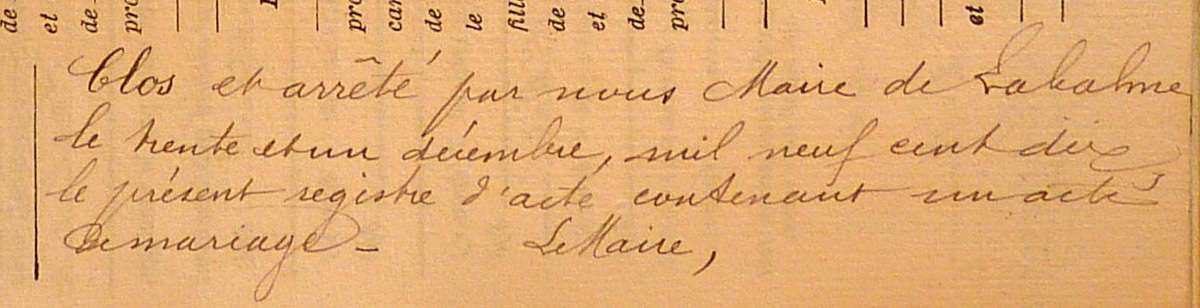 Clos et arrêté par nous Maire de Labalme
le trente et un décembre, mil neuf cent dix,
le présent registre d'acte contenant un acte
de mariage -
Le Maire,
de
et
de
pro
pro
de
le
fill
de
et
de
pro
et